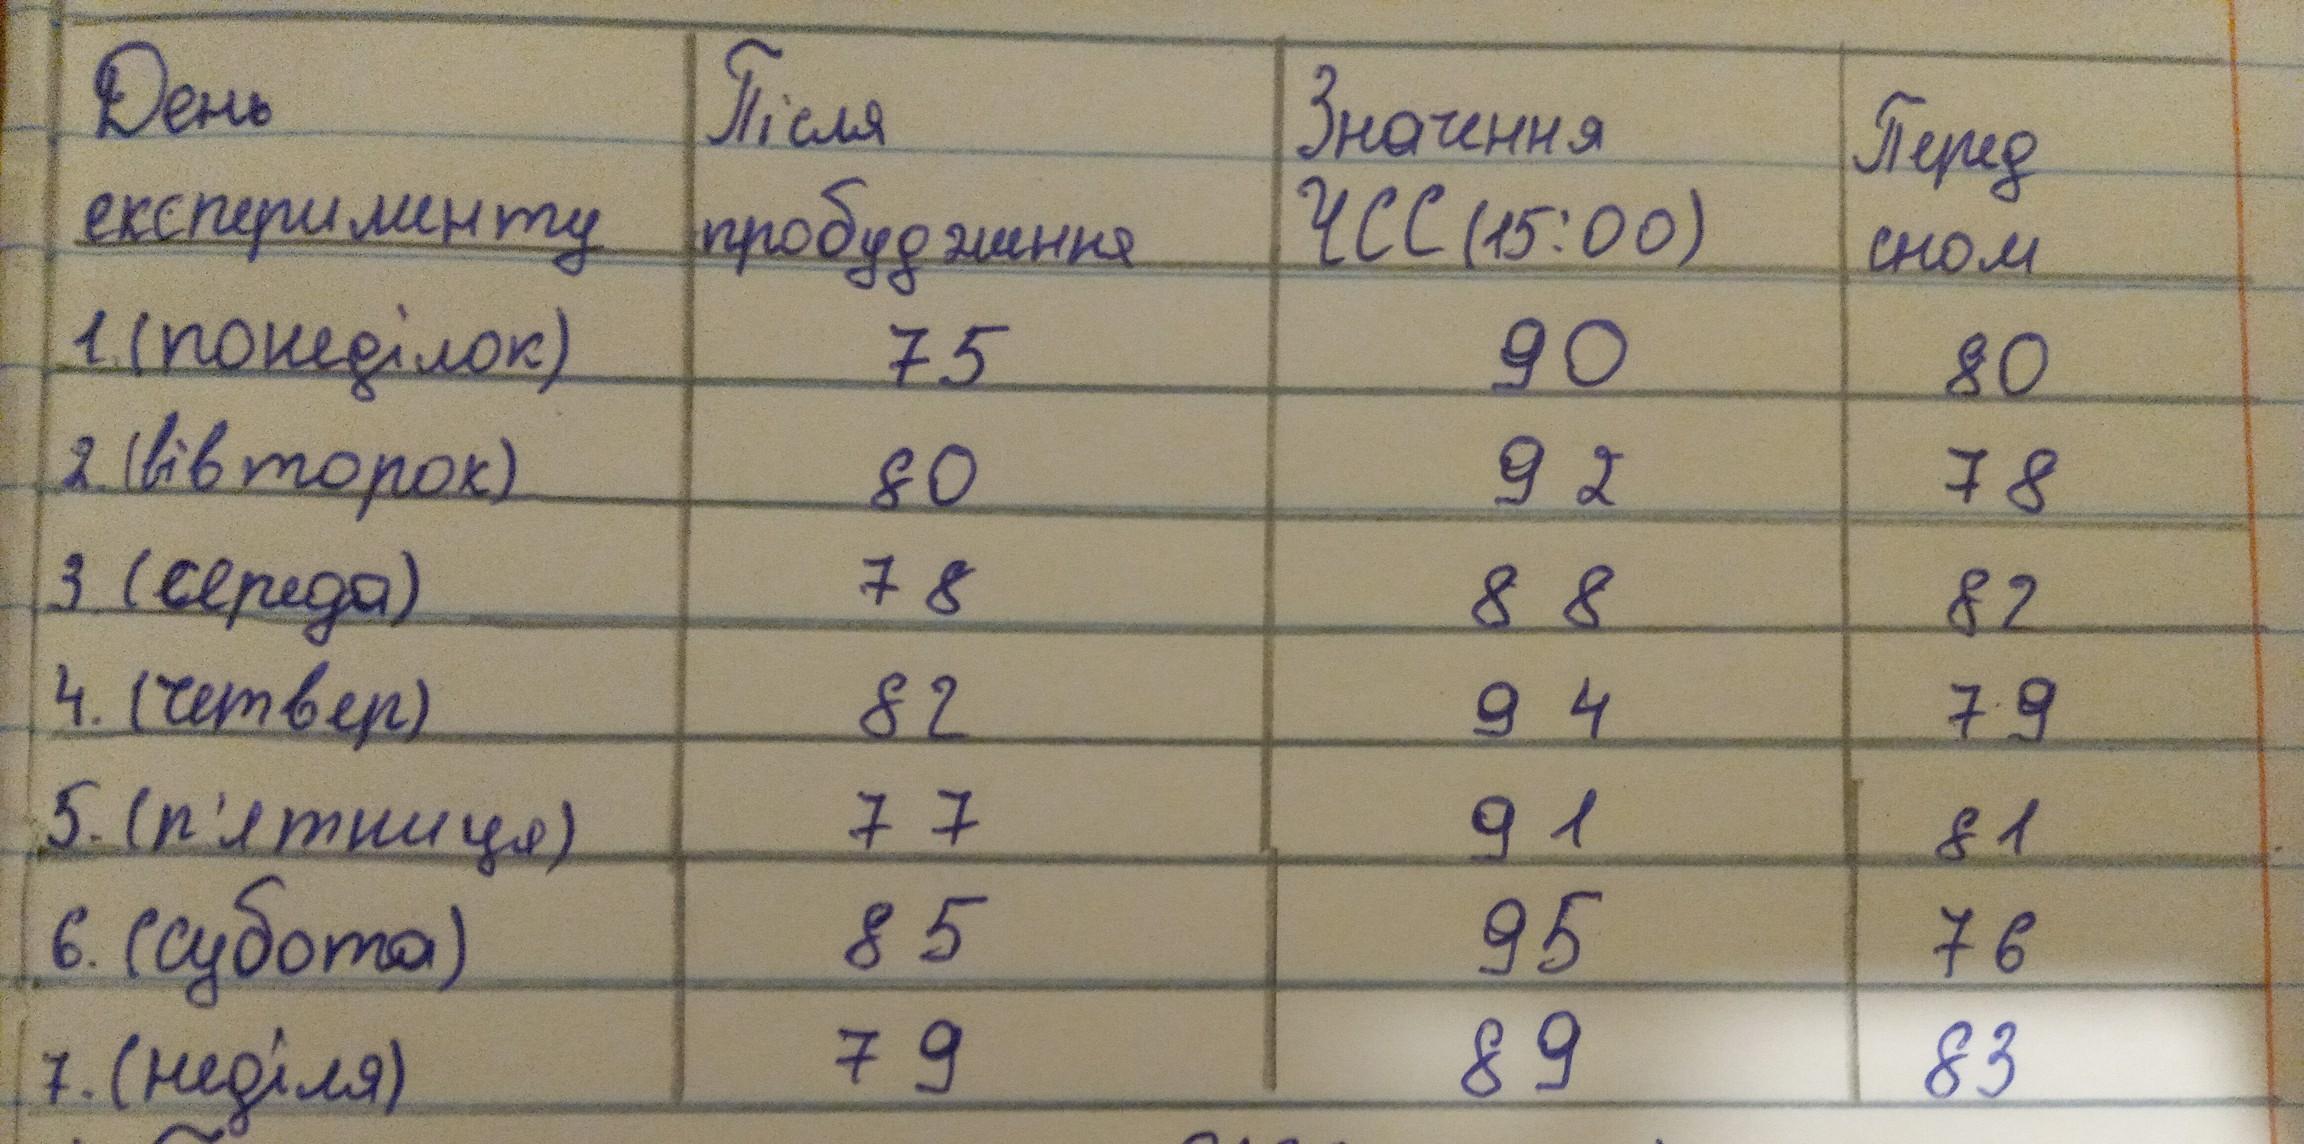 День Після Значення Перед
експерименту пробудження ЧСС (15:00) сном
1.(понеділок) 75 90 80
2.(вівторок) 80 92 78
3 (середа) 78 88 82
4. (четвер) 82 94 79
5. (п'ятниця) 77 91 81
6. (субота) 85 95 76
7. (неділя) 79 89 83